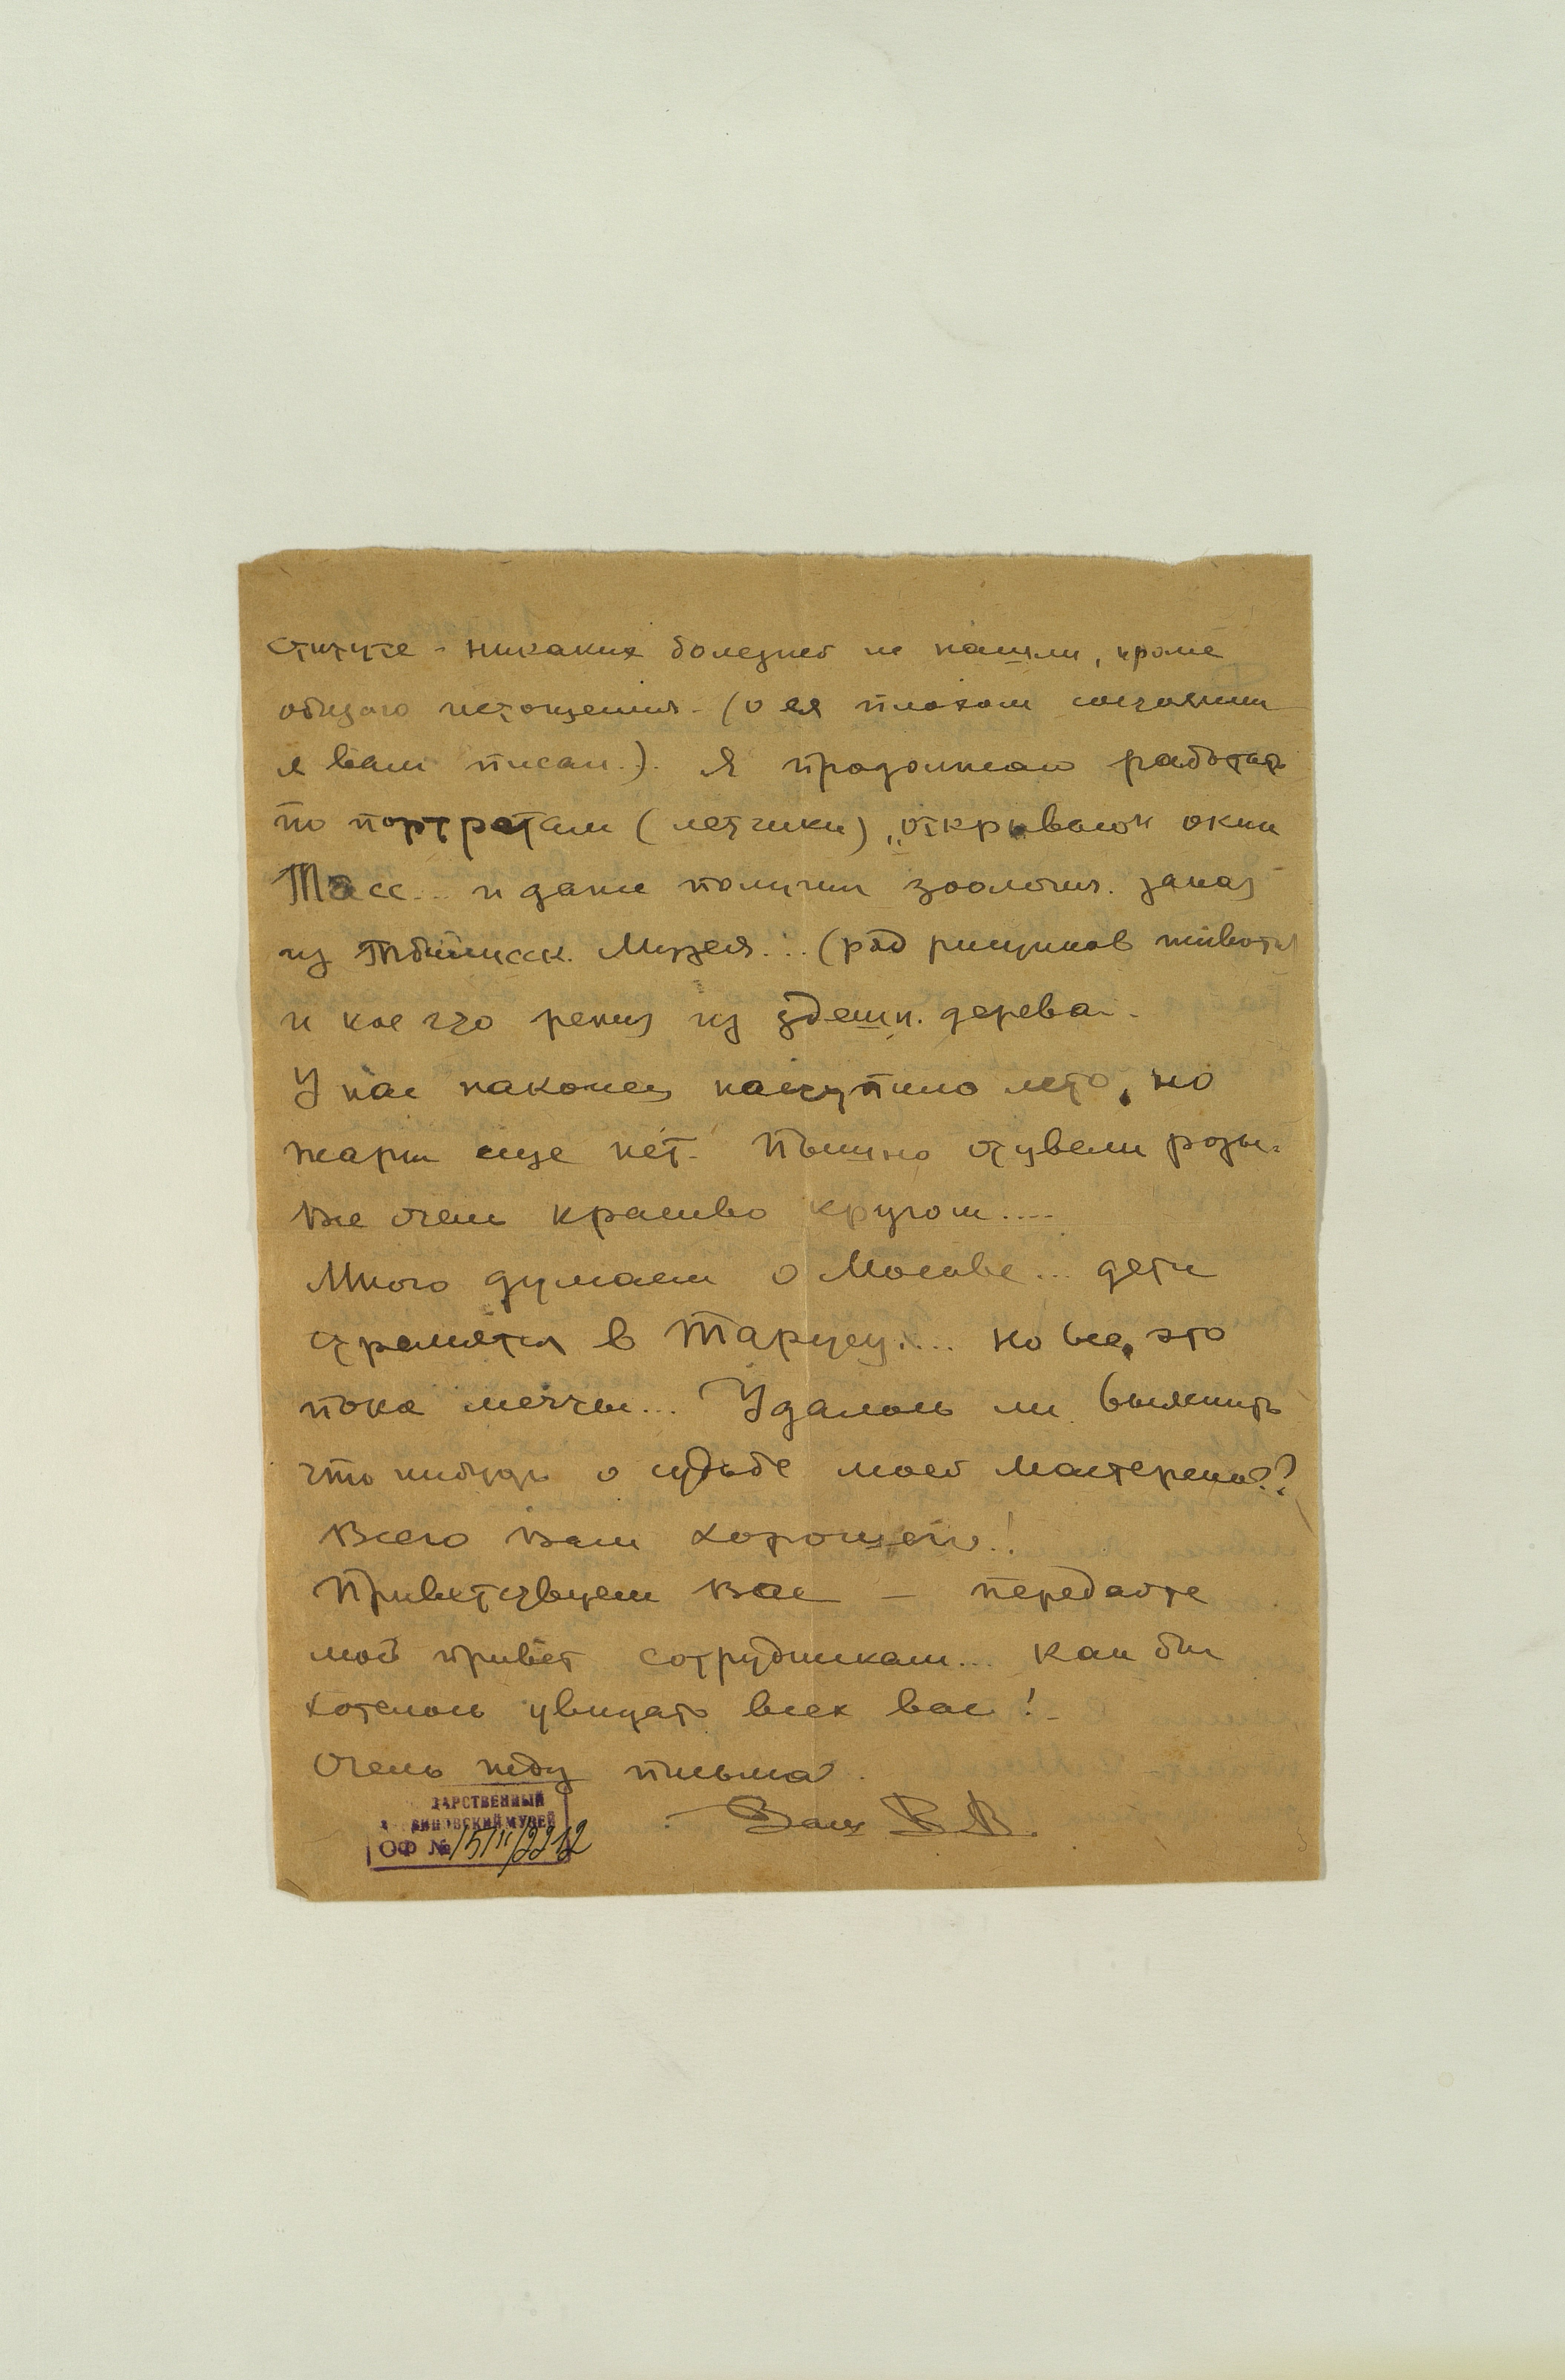 ституте - никаких болезней не нашли, кроме
общаго истощения. (о ея плохом состоянии
я вам писал.). Я продолжаю работать
по портретам (летчики) „открываю" окна
Тасс... и даже получил зоологич. заказ
из Тбилисск. Музея... (ряд рисунков животн
и кое что режу из здешн. дерева..
У нас наконец наступило лето, но
жары еще нет. Пышно отцвели розы.
Все очень красиво кругом....
Много думаем о Москве... дети
стремятся в Тарусу.... но все это
пока мечты... Удалось ли выяснить
что нибудь о судьбе моей мастерской??
Всего вам хорошего!
Приветствуем вас — передайте
мой привет сотрудникам... Как бы
хотелось увидать всех вас!
Очень жду письма.
Ваш В В.
ДАРСТВЕННЫЙ
ВИНОВСКИЙ МУЗЕЙ
ОФ № 15/11/2212